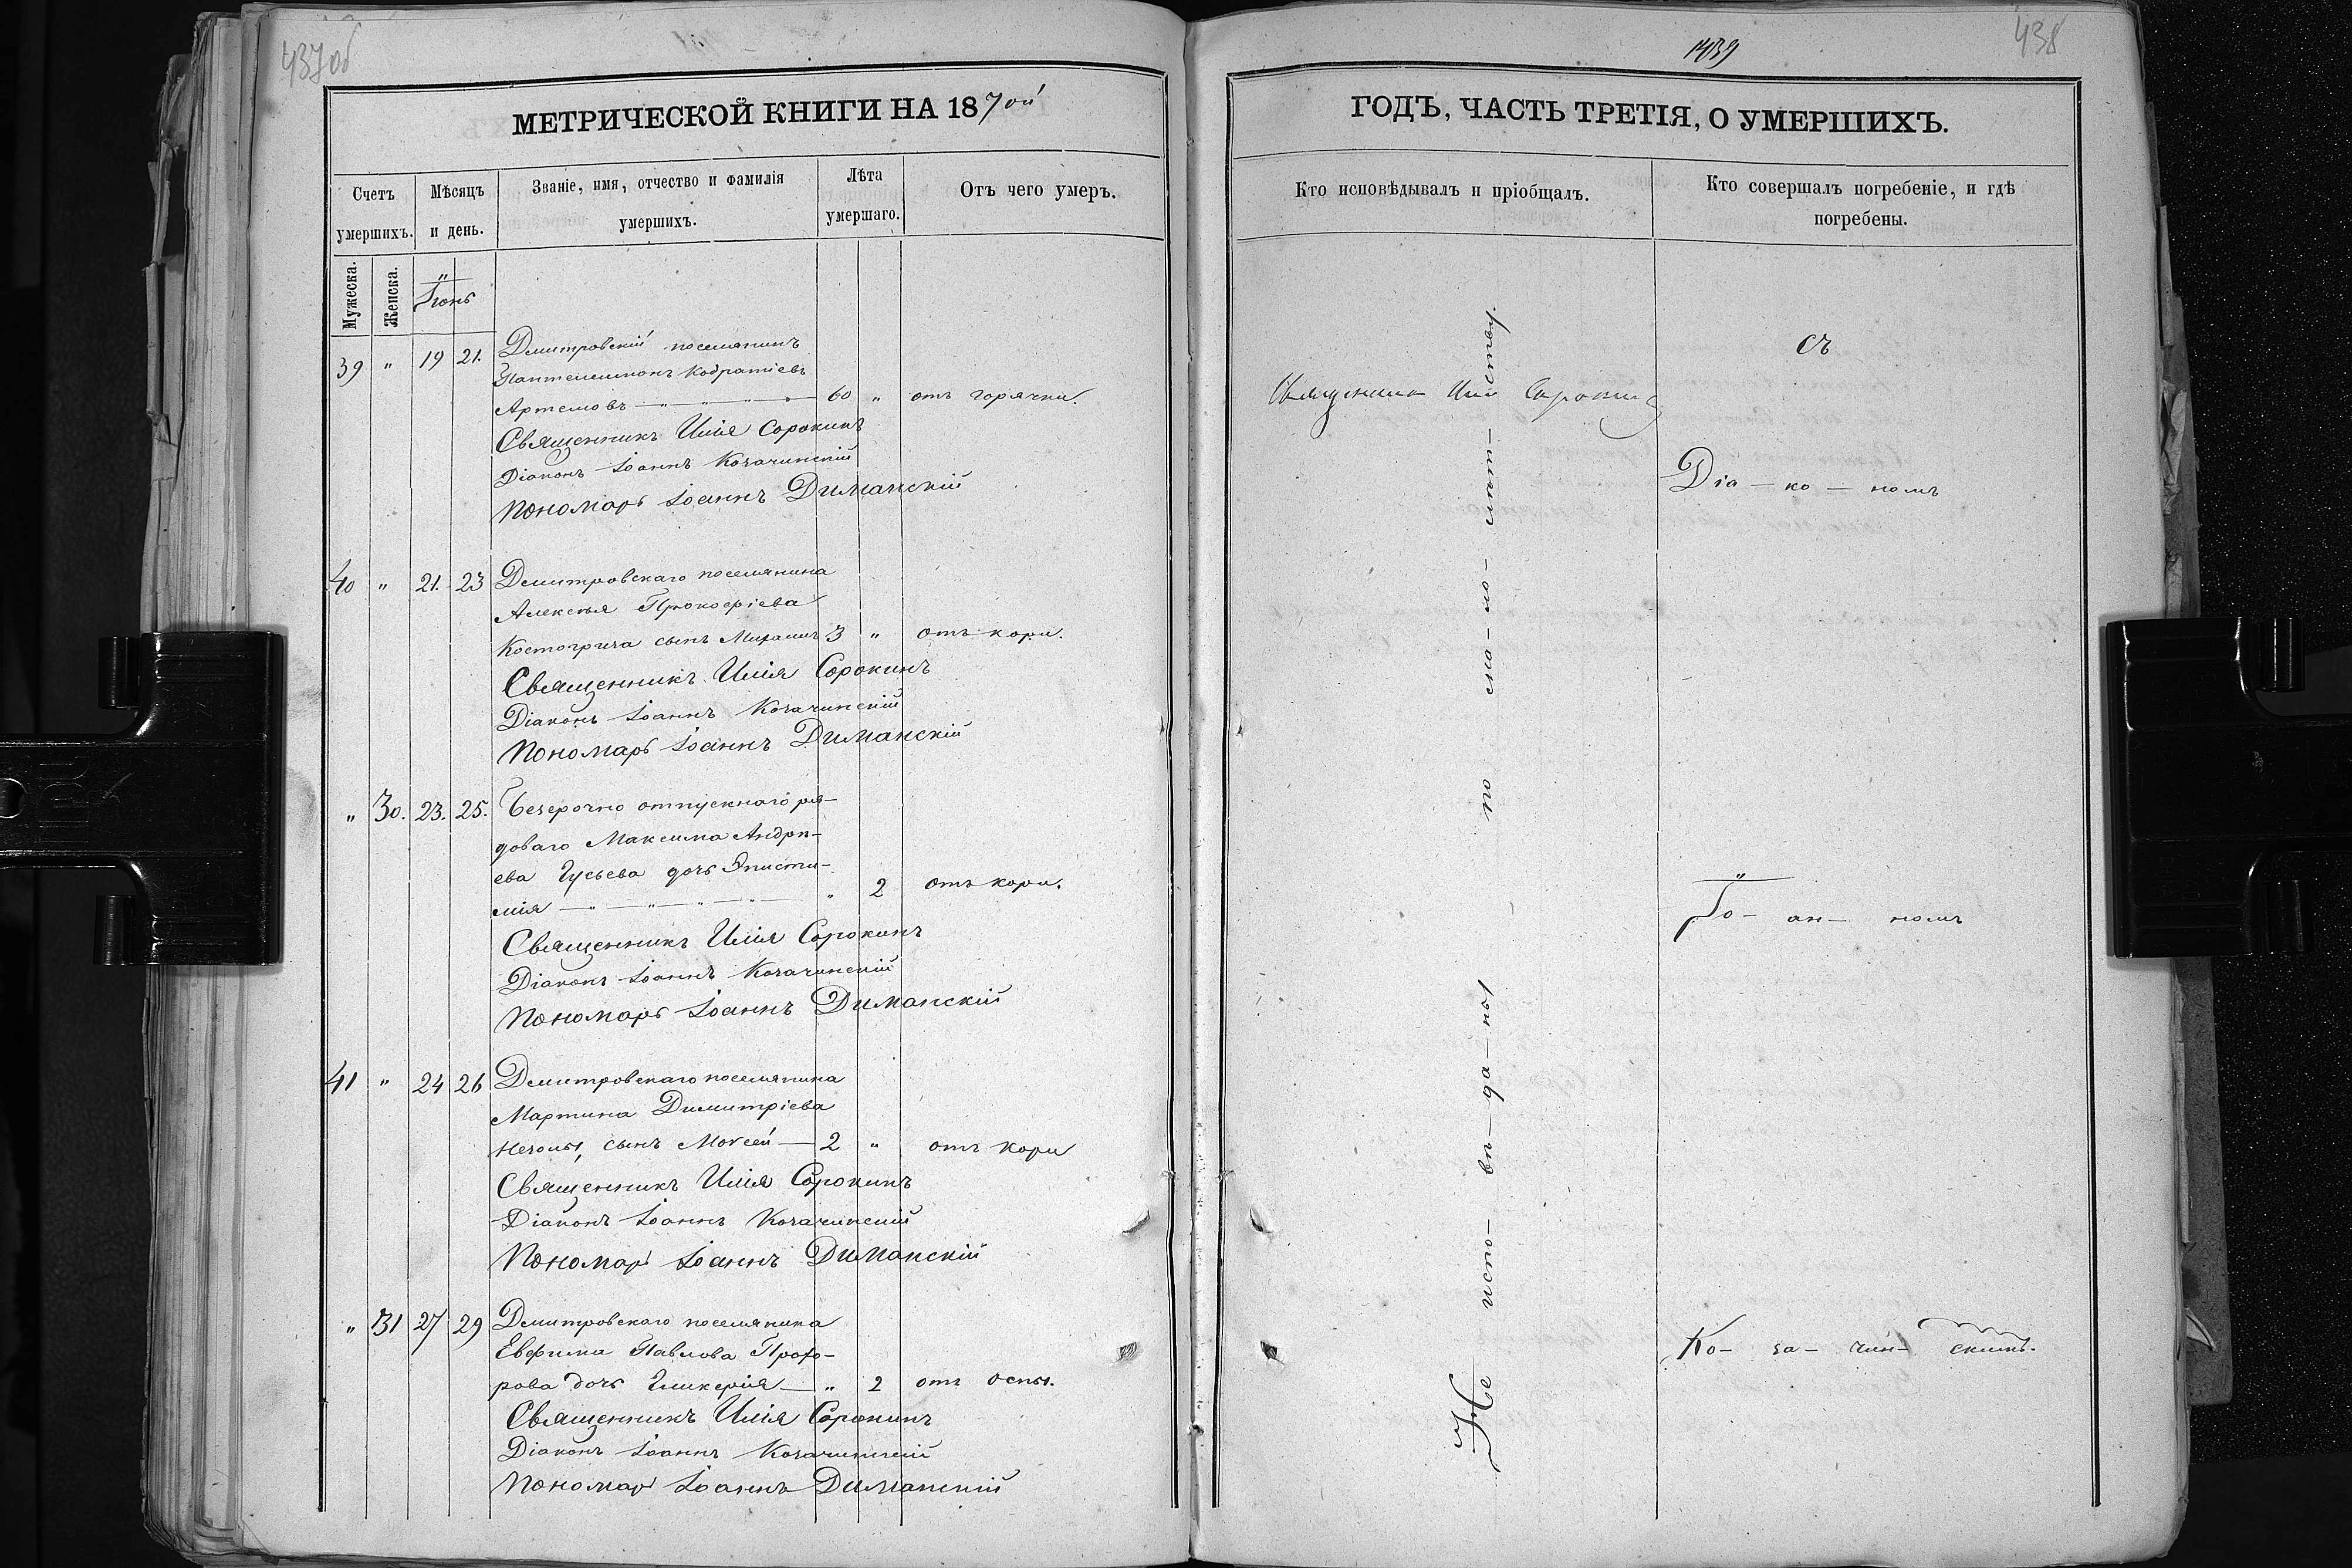 437об
МЕТРИЧЕСКОЙ КНИГИ НА 1870й
Счетъ умершихъ.
Мѣсяцъ и день.
Званіе, имя, отчество и фамилія умершихъ.
Лѣта умершаго.
Отъ чего умеръ.
Мужеска.
Женска.
Іюнь
39 " 19 21. Дмитровскій поселянинъ
Пантелеимонъ Кодратіевъ
Артемовъ — " — " — " — " — 60 " отъ горячки.
Священникъ Илія Сорокинъ
Діаконъ Іоаннъ Козачинскій
Пономарь Іоаннъ Диманскій
40 " 21. 23 Дмитровскаго поселянина
Алексѣя Прокофіева
Костогриза сынъ Михаилъ 3 " отъ кори.
Священникъ Илія Сорокинъ
Діаконъ Іоаннъ Козачинскій
Пономарь Іоаннъ Диманскій
" 30. 23. 25. Безсрочно отпускнаго ря-
доваго Максима Андрі-
ева Гусьева дочь Эписти-
мія — " — " — " — " — " 2 отъ кори.
Священникъ Илія Сорокинъ
Діаконъ Іоаннъ Козачинскій
Пономарь Іоаннъ Диманскій
41 " 24 26 Дмитровскаго поселянина
Мартина Димитріева
сынъ Моѵсей — 2 " отъ кори
Священникъ Илія Сорокинъ
Діаконъ Іоаннъ Козачинскій
Пономарь Іоаннъ Диманскій
" 31 27 29 Дмитровскаго поселянина
Евфима Павлова Прохо-
рова дочь Гликерія — " 2 отъ оспы.
Священникъ Илія Сорокинъ
Діаконъ Іоаннъ Козачинскій
Пономарь Іоаннъ Диманскій
438
ГОДЪ, ЧАСТЬ ТРЕТІЯ, О УМЕРШИХЪ.
Кто исповѣдывалъ и пріобщалъ.
Кто совершалъ погребеніе, и гдѣ погребены.
Священникъ Илія Сорокинъ
Не испо- вѣ- да- ны по ма- ло- лѣт- ству.
съ
Діа — ко — номъ
Іо- ан- номъ
Ко- за- чин- скимъ.